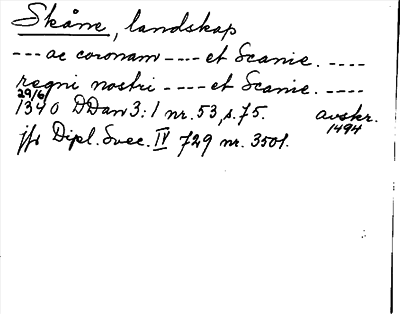 Skåne, landskap
--- ac coronam ---- et Scanie. ----
regni nostri ---- et Scanie. ----
29/6 1340 DDan 3:1 nr. 53, s. 75. avskr. 1494
jfr Dipl. Svec. IV 729 nr. 3501.